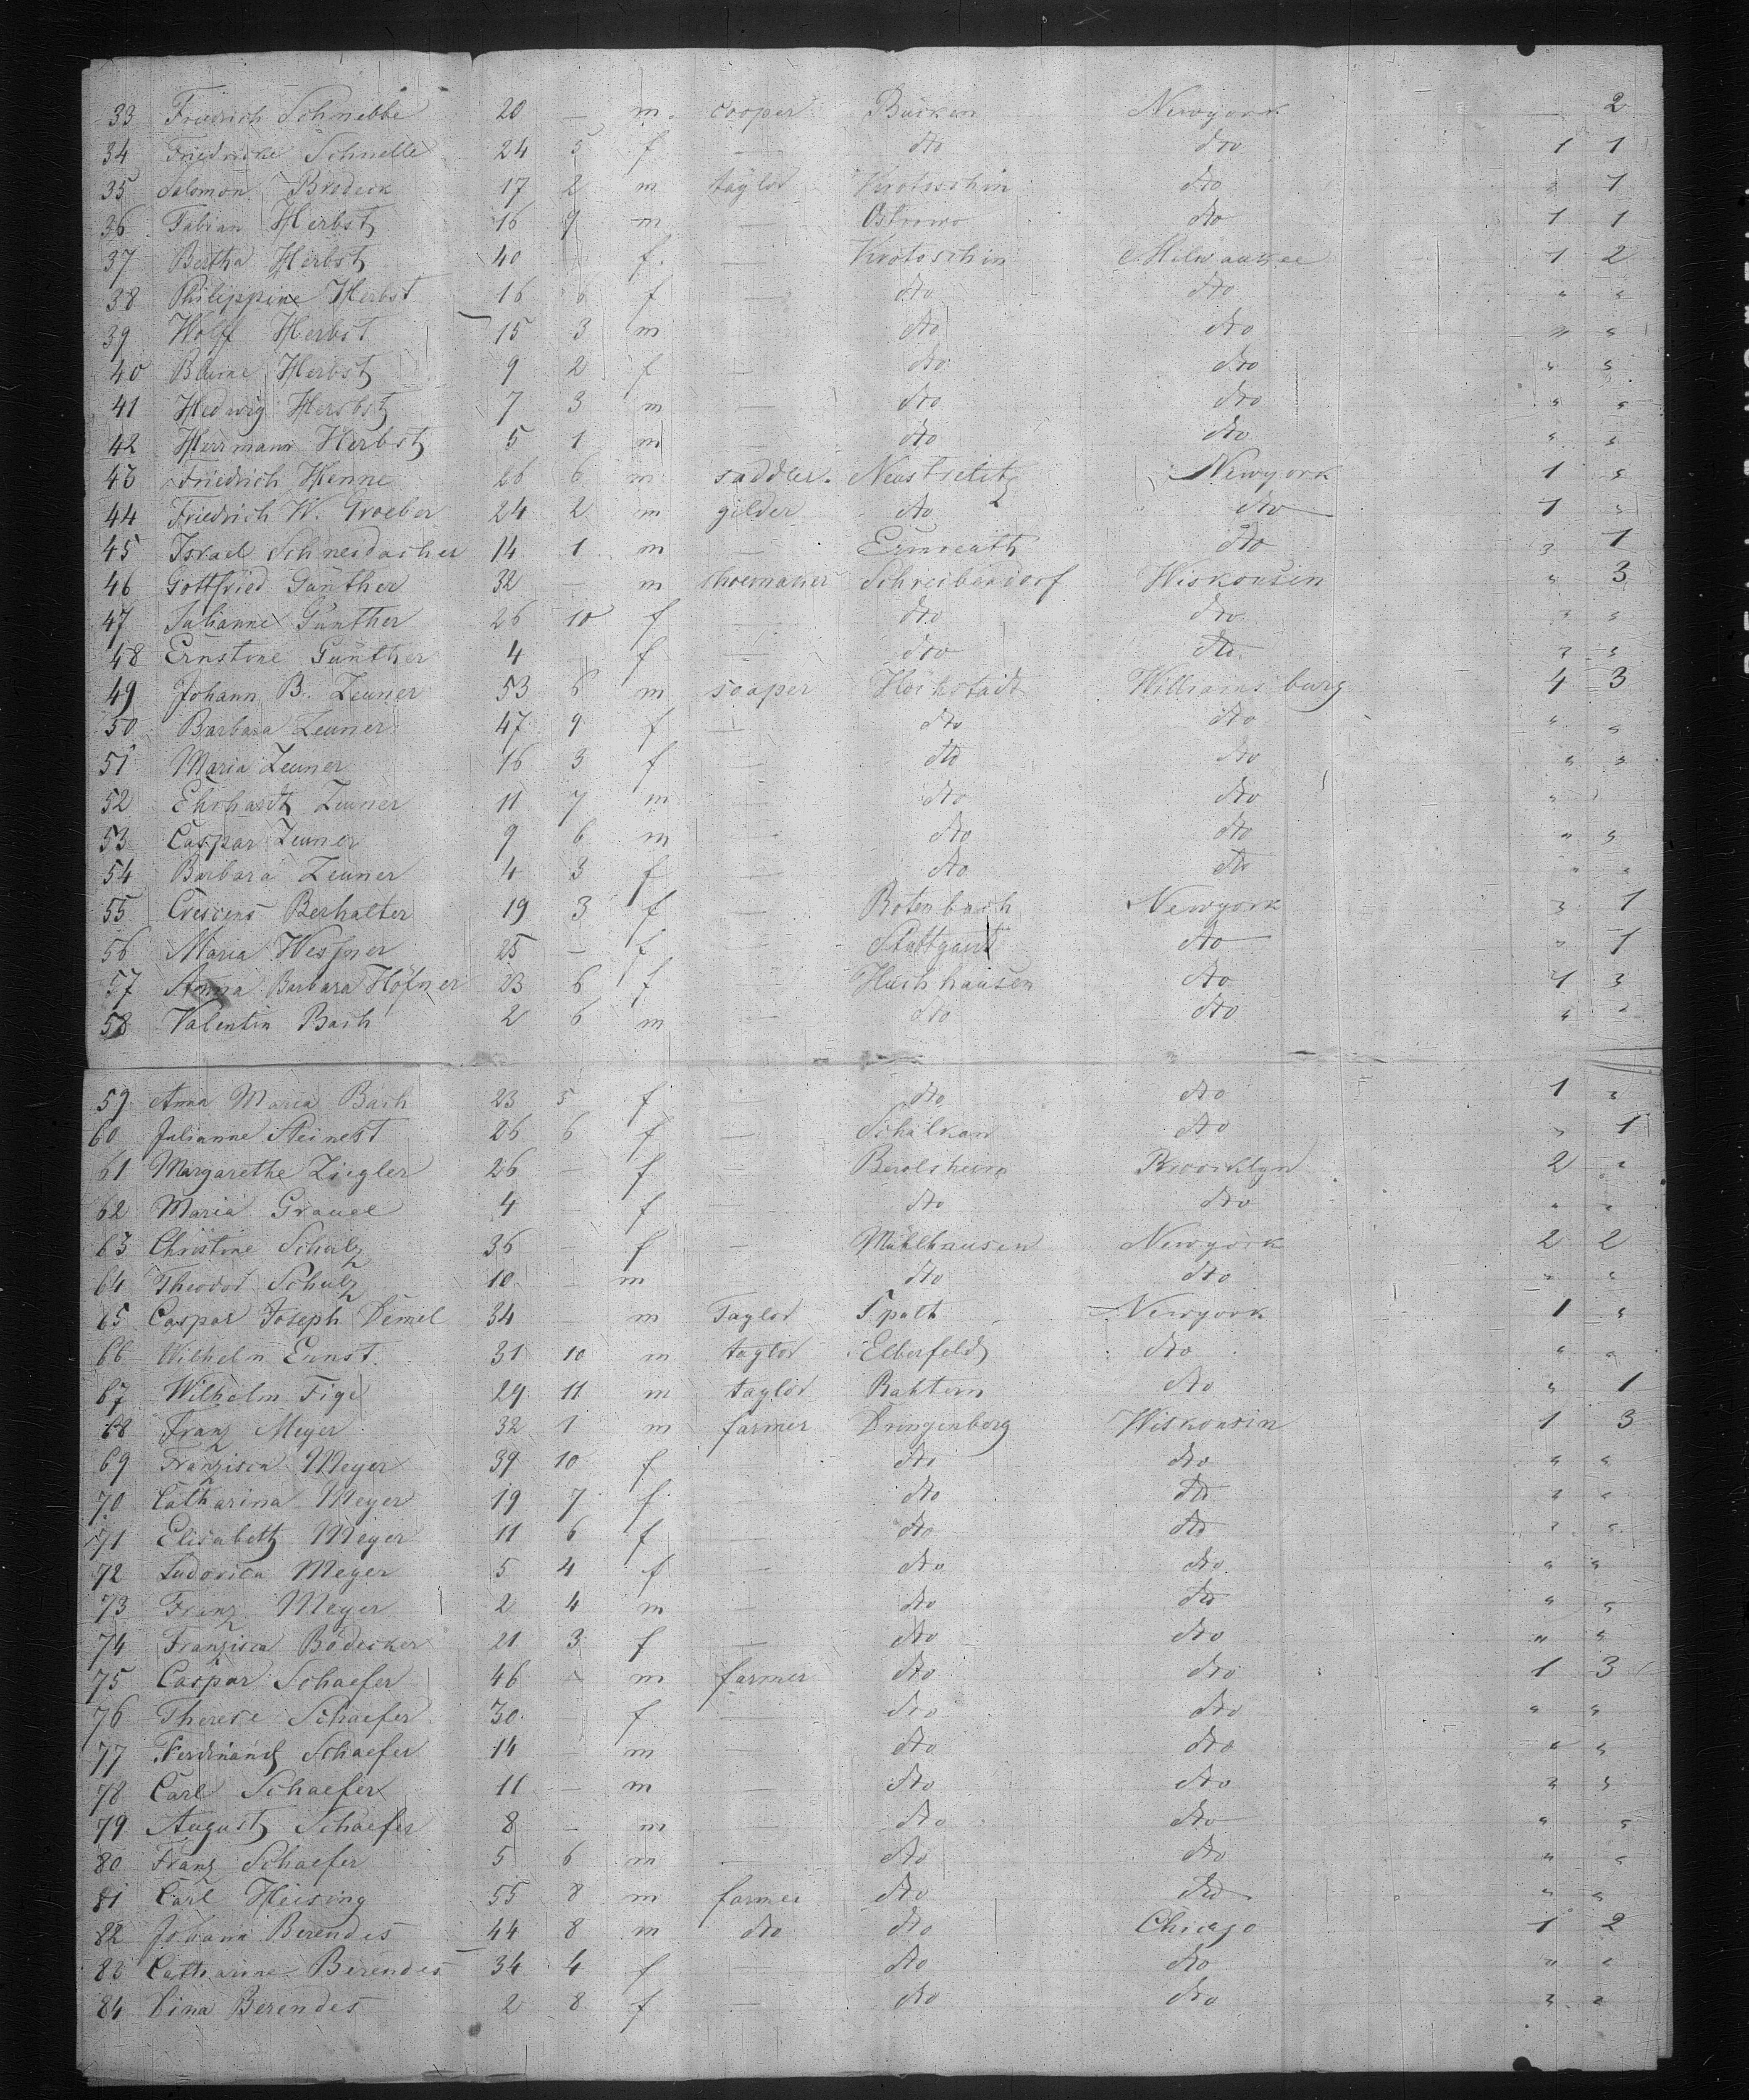 33 Friedrich Schnibbe 20 — m. cooper Bücken Newyork 2
34 Friedricke Schnelle 24 5 f — dto dto 1 1
35 Salomon Brodeck 17 2 m taylor Krotoschin dto " 1
36 Fabian Herbst 16 9 m — Ostrowo dto 1 1
37 Bertha Herbst 40 f. — Krotoschin Milwaukee 1 2
38 Philippine Herbst 16 f — dto dto " "
39 Wolff Herbst 15 3 m dto dto " "
40 Blume Herbst 9 2 f — dto dto " "
41 Hedwig Herbst 7 3 m — dto dto " "
42 Herrmann Herbst 5 1 m dto dto " "
43 Friedrich Henne 26 6 m saddler. Neustrelitz Newyork 1 "
44 Friedrich W. Groeber 24 2 m gilder dto dto 1 "
45 Israel Schneidacher 14 1 m — Ermreuth dto " 1
46 Gottfried Günther 32 — m shoemaker Schreibendorf Wiskonsin " 3
47 Julianne Günther 26 10 f — dto dto " "
48 Ernstine Günther 4 f — dto dto " "
49 Johann B. Zeuner 53 6 m soaper Höchstadt Williamsburg 4 3
50 Barbara Zeuner 47 9 f — dto dto " "
51 Maria Zeuner 16 3 f — dto dto " "
52 Ehrhardt Zeuner 11 7 m — dto dto "
53 Caspar Zeuner 9 6 m — dto dto " "
54 Barbara Zeuner 4 3 f — dto dto " "
55 Crescens Berhalter 19 3 f — Rotenbach Newyork " 1
56 Maria Wessner 25 — f — Stuttgart dto " 1
57 Anna Barbara Höfner 23 6 f Huchhausen dto 4 3
58 Valentin Bach 2 6 m — dto dto " "
59 Anna Maria Bach 23 5 f — dto dto 1 "
60 Julianne Steinert 26 6 f — Schalkau dto " 1
61 Margarethe Ziegler 26 — f — Berolsheim Brooklyn 2 "
62 Maria Grauel 4 — f — dto dto " "
63 Christine Schulz 36 — f — Mühlhausen Newyork 2 2
64 Theodor Schulz 10 — m dto dto " "
65 Caspar Joseph Demel 34 — m Taylor Spalt Newyork 1 "
66 Wilhelm Ernst. 31 10 m taylor Elberfeld dto " "
67 Wilhelm Fige 29 11 m taylor Rahtern dto " 1
68 Franz Meyer 32 1 m farmer Dringenberg Wiskonsin 1 3
69 Franzisca Meyer 39 10 f dto dto " "
70 Catharina Meyer 19 7 f dto dto " "
71 Elisabeth Meyer 11 6 f — dto dto " "
72 Ludovica Meyer 5 4 f — dto dto " "
73 Franz Meyer 2 4 m — dto dto " "
74 Franzisca Bödecker 21 3 f — dto dto " "
75 Caspar Schaefer 46 - m farmer dto dto 1 3
76 Therese Schaefer 30 f — dto dto " "
77 Ferdinand Schaefer 14 — m — dto dto " "
78 Carl Schaefer 11 — m — dto dto " "
79 August Schaefer 8 — m — dto dto " "
80 Franz Schaefer 5 6 m — dto dto " "
81 Carl Heising 55 8 m farmer dto dto " "
82 Johann Berendes 44 8 m dto dto Chicago 1 2
83 Catharine Berendes 34 4 f — dto dto " "
84 Dina Berendes 2 8 f — dto dto " "